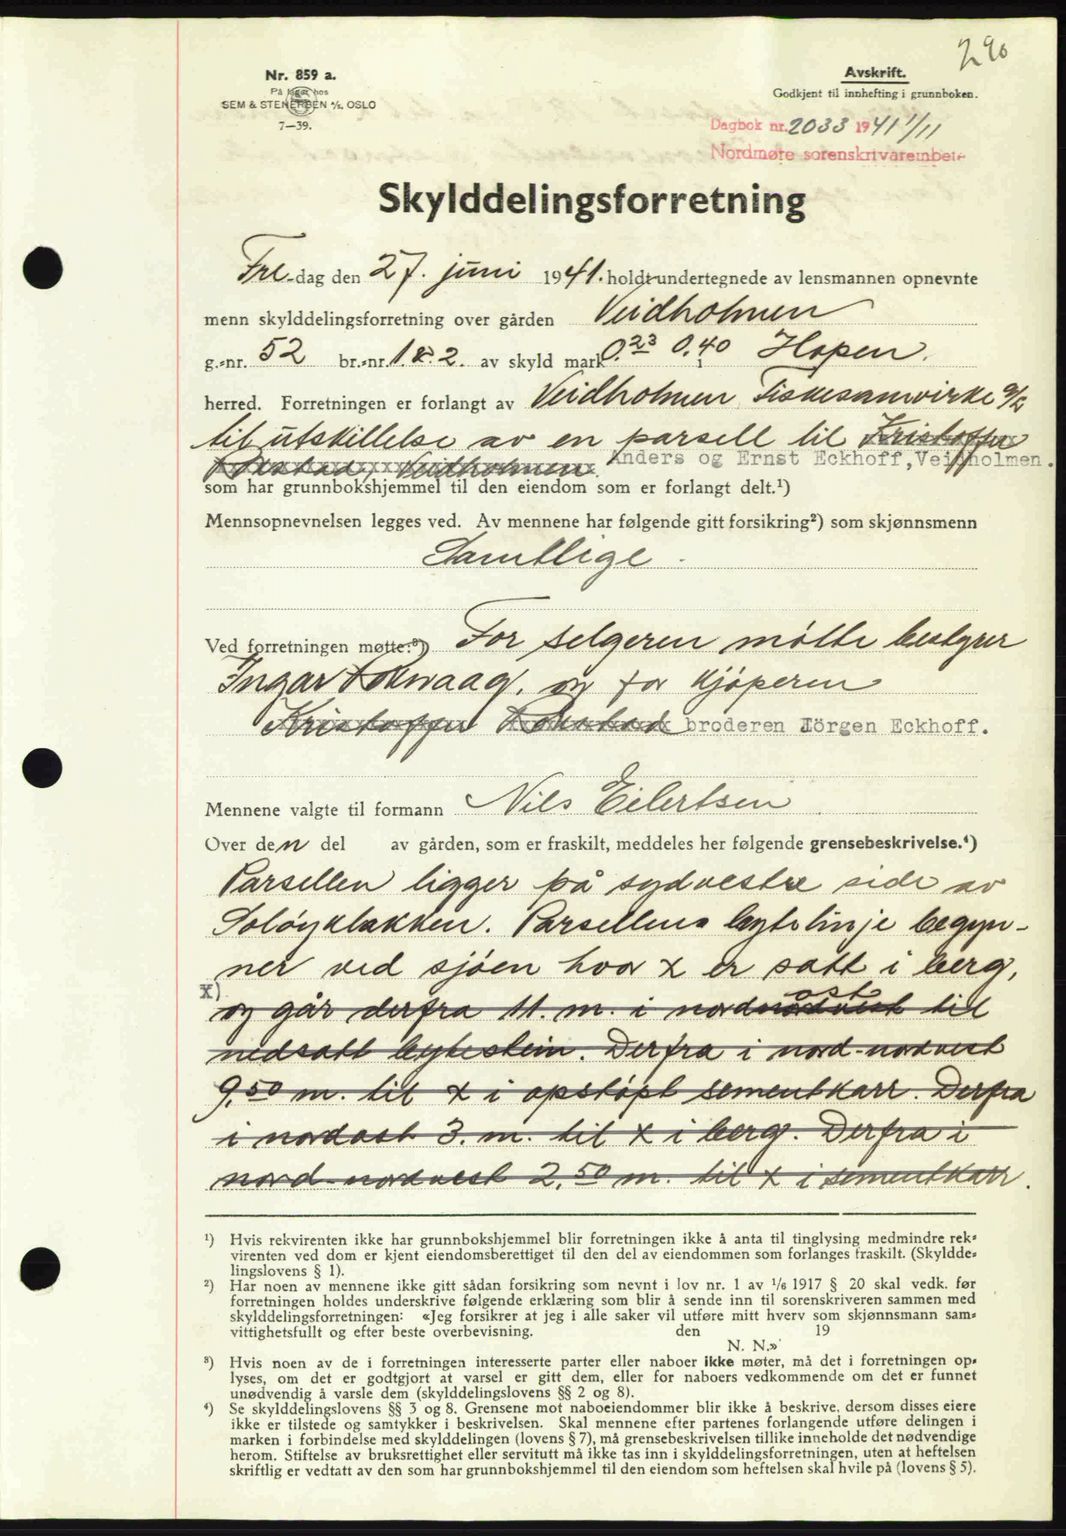 290
Nr. 859 a.
På lager hos
SEM & STENERSEN A/S, OSLO
7—39.
Avskrift.
Godkjent til innhefting i grunnboken.
Dagbok nr. 2033 1941 1/11
Nordmøre sorenskrivarembete
Skylddelingsforretning
Fre-dag den 27. juni 1941. holdt undertegnede av lensmannen opnevnte
menn skylddelingsforretning over gården Veidholmen
g.-nr. 52 br.-nr. 1.&2. av skyld mark 0.23 0.40 i Hopen.
herred. Forretningen er forlangt av Veidholmen Fiskesamvirke a/l
til utskillelse av en parsell til Kristoffer
Rokstad, Veidholmen. Anders og Ernst Eckhoff, Veidholmen.
som har grunnbokshjemmel til den eiendom som er forlangt delt.¹)
Mennsopnevnelsen legges ved. Av mennene har følgende gitt forsikring²) som skjønnsmenn
Samtlige.
Ved forretningen møtte:³) For selgeren møtte bestyrer
Ingar Rokvaag. og for kjøperen
Kristoffer Rokstad broderen Jörgen Eckhoff.
Mennene valgte til formann Nils Eilertsen
Over den del av gården, som er fraskilt, meddeles her følgende grensebeskrivelse.⁴)
Parsellen ligger på sydvestre side av
Soløyklakken. Parsellens bytelinje begyn-
ner ved sjøen hvor x er satt i berg,
x)
og går derfra 11. m. i nordnordvest ost til
nedsatt bytestein. Derfra i nord-nordvest
9,50 m. til x i opstøpt sementkarr. Derfra
i nordost 3. m. til x i berg. Derfra i
nord-nordvest 2,50 m. til x i sementkarr.
¹) Hvis rekvirenten ikke har grunnbokshjemmel blir forretningen ikke å anta til tinglysing medmindre rek-
virenten ved dom er kjent eiendomsberettiget til den del av eiendommen som forlanges fraskilt. (Skyldde-
lingslovens § 1).
²) Har noen av mennene ikke gitt sådan forsikring som nevnt i lov nr. 1 av 1/6 1917 § 20 skal vedk. før
forretningen holdes underskrive følgende erklæring som blir å sende inn til sorenskriveren sammen med
skylddelingsforretningen: «Jeg forsikrer at jeg i alle saker vil utføre mitt hverv som skjønnsmann sam-
vittighetsfullt og efter beste overbevisning. den 19
N. N.»
³) Hvis noen av de i forretningen interesserte parter eller naboer ikke møter, må det i forretningen op-
lyses, om det er godtgjort at varsel er gitt dem, eller for naboers vedkommende om det er funnet
unødvendig å varsle dem (skylddelingslovens §§ 2 og 8).
⁴) Se skylddelingslovens §§ 3 og 8. Grensene mot naboeiendommer blir ikke å beskrive, dersom disses eiere
ikke er tilstede og samtykker i beskrivelsen. Skal mennene efter partenes forlangende utføre delingen i
marken i forbindelse med skylddelingen (lovens § 7), må grensebeskrivelsen tillike inneholde det nødvendige
herom. Stiftelse av bruksrettighet eller servitutt må ikke tas inn i skylddelingsforretningen, uten at heftelsen
skriftlig er vedtatt av den som har grunnbokshjemmel til den eiendom som heftelsen skal hvile på (lovens § 5).